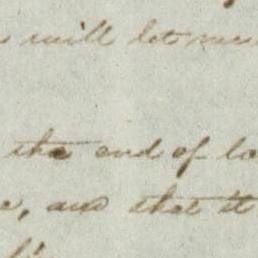 will let me
the end of
, and that it